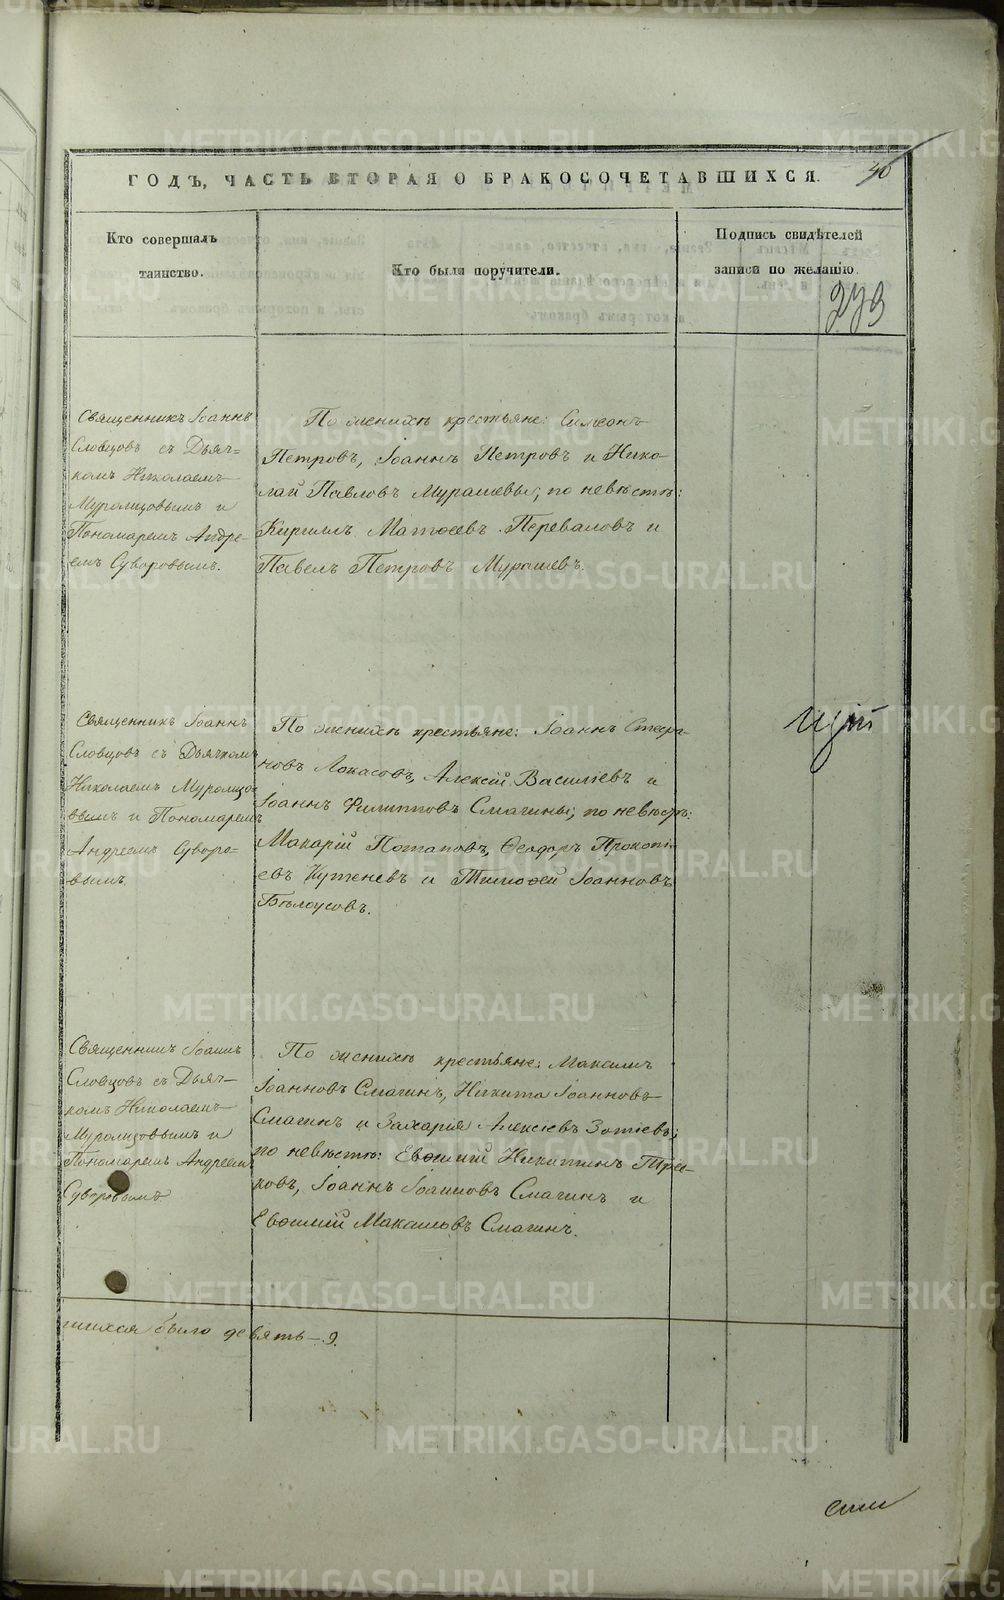 ГОДЪ, ЧАСТЬ ВТОРАЯ О БРАКОСОЧЕТАВШИХСЯ.
Кто совершалъ
таинство.
Кто были поручители.
Подпись свидѣтелей
записи по желанію.
Священникъ Іоаннъ
Словцовъ съ Дьяч-
комъ Николаемъ
Муромцовымъ и
Пономаремъ Андре-
емъ Суворовымъ.
По женихѣ крестьяне: Симеонъ
Петровъ, Іоаннъ Петровъ и Нико-
лай Павловъ Мурашевы; по невѣстѣ:
Кириллъ Матѳеевъ Переваловъ и
Павелъ Петровъ Мурашевъ.
Священникъ Іоаннъ
Словцовъ съ Дьячкомъ
Николаемъ Муромцо-
вымъ и Пономаремъ
Андреемъ Суворо-
вымъ.
По женихѣ крестьяне: Іоаннъ Стефа-
новъ Алексій Васильевъ и
Іоаннъ Филипповъ Смагины; по невѣстѣ:
Макарій Потаповъ, Ѳеодоръ Прокопі-
евъ и Тимоѳей Іоанновъ
Бѣлоусовъ.
Священникъ Іоаннъ
Словцовъ съ Дьяч-
комъ Николаемъ
Муромцовымъ и
Пономаремъ Андреемъ
Суворовымъ
По женихѣ крестьяне: Максимъ
Іоанновъ Смагинъ, Никита Іоанновъ
Смагинъ и Захарія Алексѣевъ Зотѣевъ;
по невѣстѣ: Евѳимій Никитинъ
Іоаннъ Іоанновъ Смагинъ и
Евѳимій Максимовъ Смагинъ.
шихся было девять 9.
METRIKI.GASO-URAL.RU